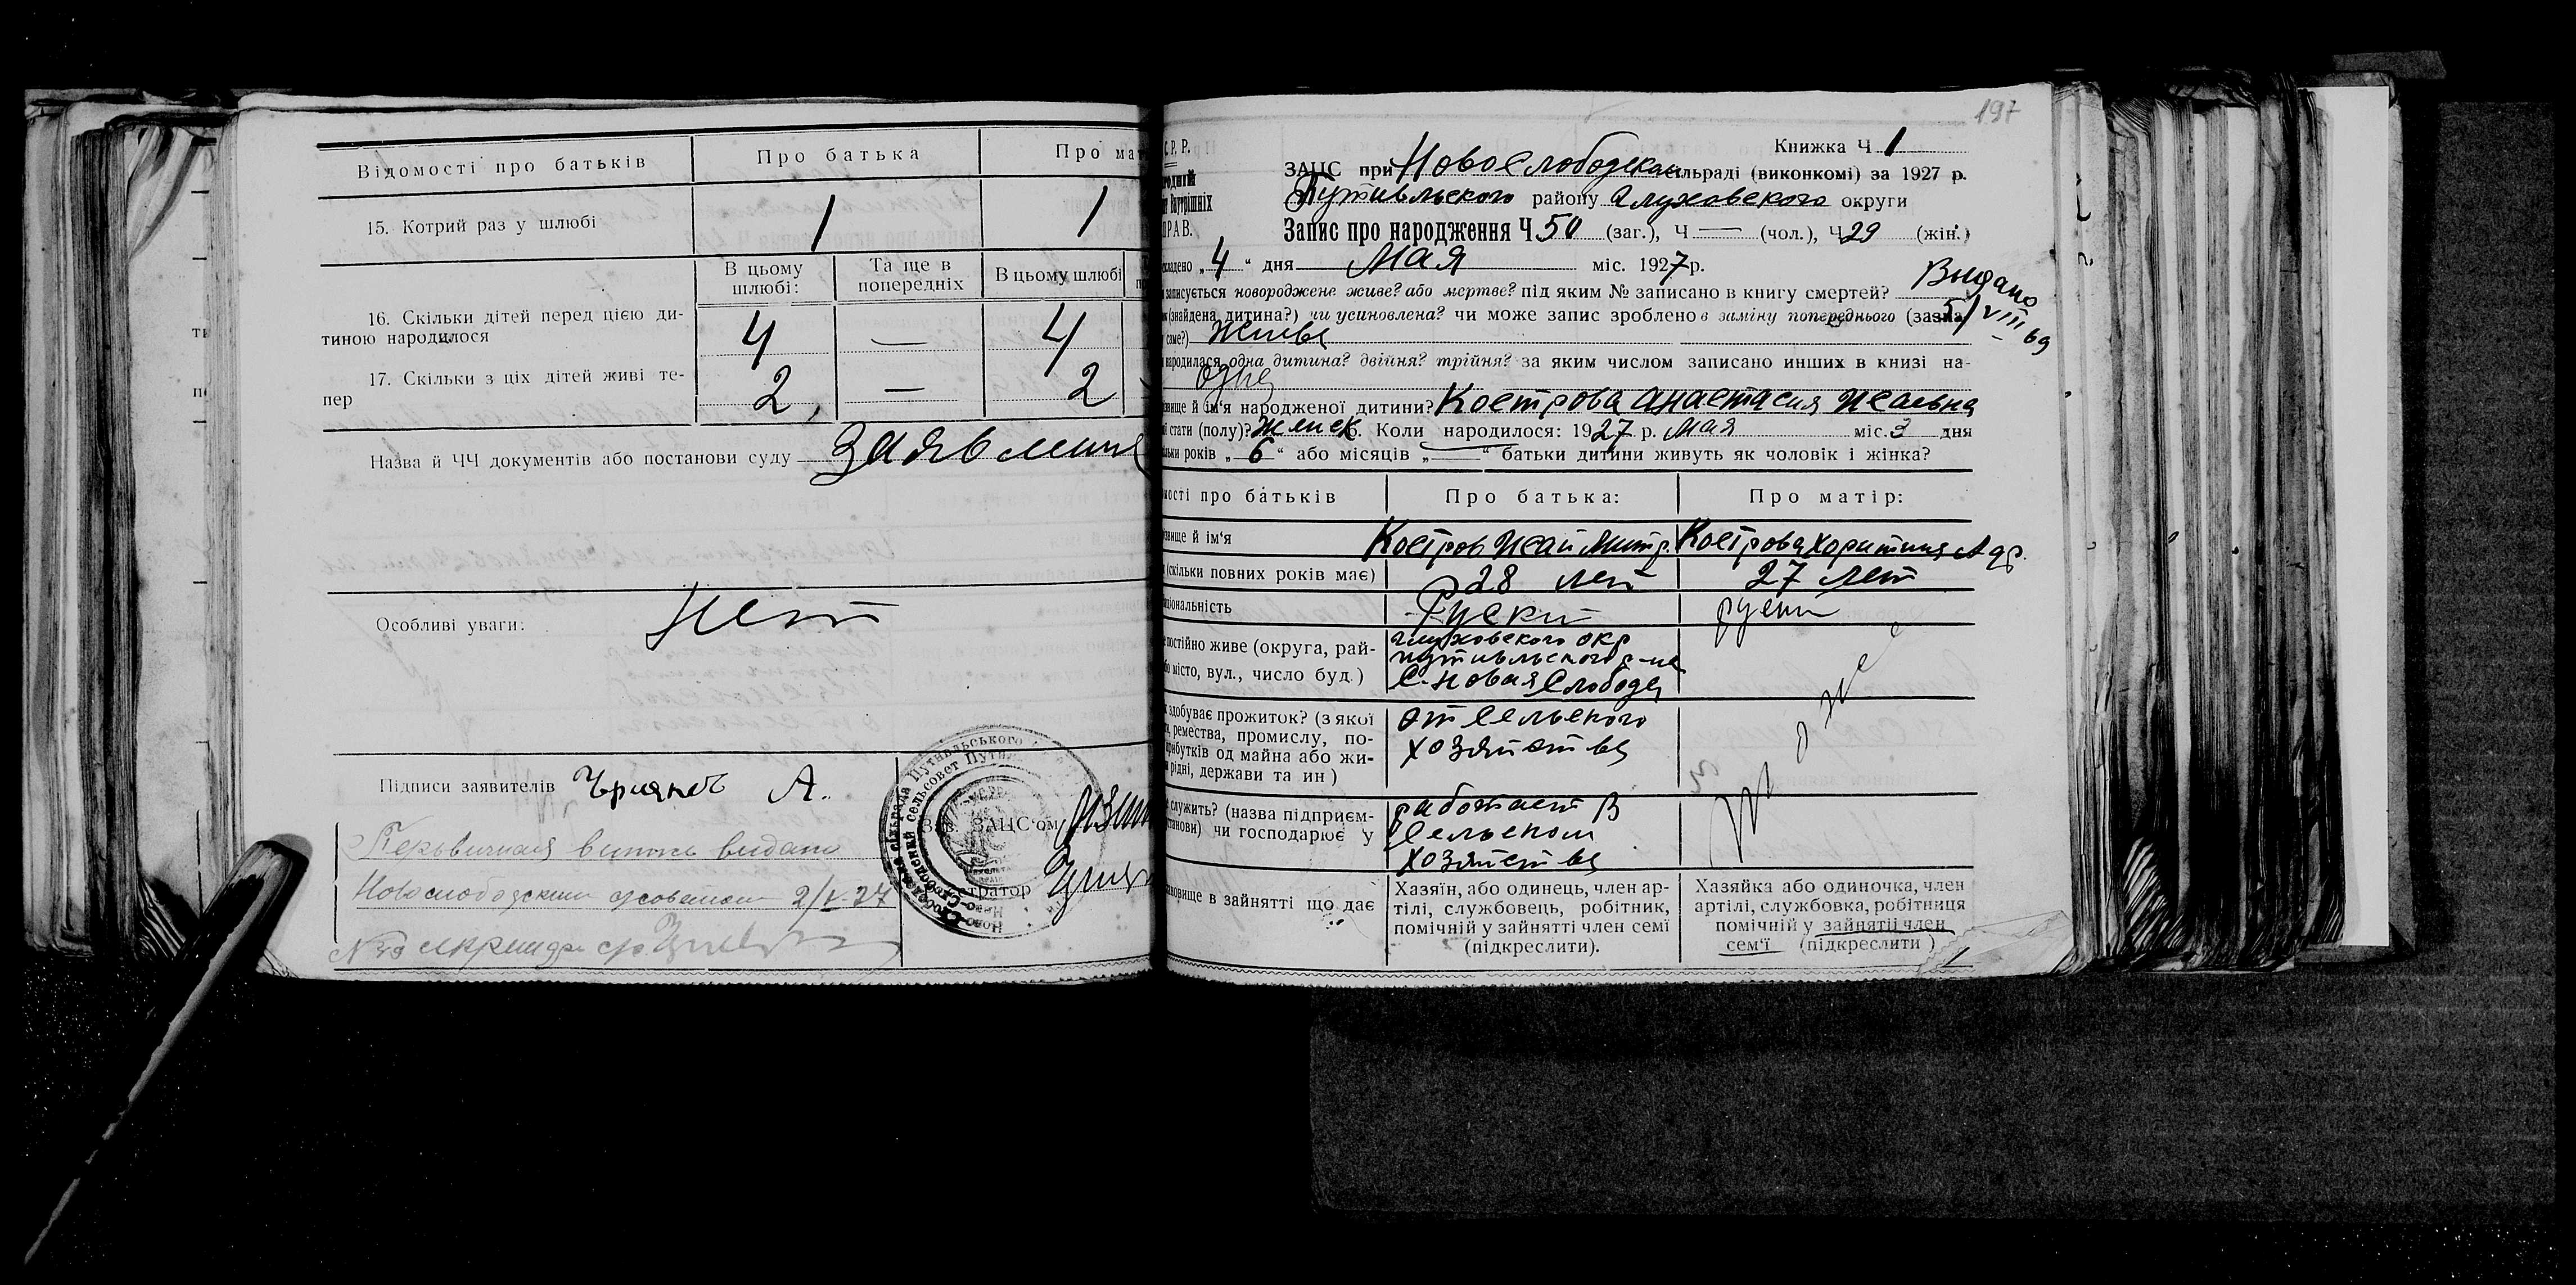 Відомості про батьків
Про батька
Про мат
15. Котрий раз у шлюбі
1
1
В цьому шлюбі:
Та ще в попередніх
В цьому шлюбі
16. Скільки дітей перед цією ди-
тиною народилося
4
—
4
17. Скільки з ціх дітей живі те-
пер
2
—
2
Назва й ЧЧ документів або постанови суду
Особливі уваги:
нет
Підписи заявителів
А.
выдана
Новослободским
Зав. ЗАЦС'ом
197
С.Р.Р.
Книжка Ч 1
ЗАЦС при Новослободской сільраді (виконкомі) за 1927 р.
Путивльского району Глуховского округи
Запис про народження Ч 50 (заг.), Ч — (чол.), Ч 29 (жін.)
„4“ дня Мая міс. 1927 р.
записується новороджене живе? або мертве? під яким № записано в книгу смертей?
Выдано
5/VIII 69
(знайдена дитина?) чи усиновлена? чи може запис зроблено в заміну попереднього
саме?) живы
народилася одна дитина? двійня? трійня? за яким числом записано инших в книзі на-
одна
й ім'я народженої дитини? Кострова Анастасия Исаевна
стати (полу)? женск. Коли народилося: 1927 р. Мая міс. 3 дня
років „6“ або місяців „—“ батьки дитини живуть як чоловік і жінка?
про батьків
Про батька:
Про матір:
й ім'я
Костров Исай Митр.
Кострова Харитина
(скільки повних років має)
28 лет
27 лет
Руский
постійно живе (округа, рай-
місто, вул., число буд.)
Глуховского окр
Путивльского р-на
С. Новая Слобода
то же
здобуває прожиток? (з якої
ремества, промислу, по-
од майна або жи-
рідні, держави та ин)
от сельского
хозяйства
служить? (назва підприєм-
чи господарює у
работает в
сельском
хозяйстве
в зайнятті що дає
Хазяїн, або одинець, член ар-
тілі, службовець, робітник,
помічній у зайнятті член семї
(підкреслити).
Хазяйка або одиночка, член
артілі, службовка, робітниця
помічній у зайнятіі член
сем'ї (підкреслити)